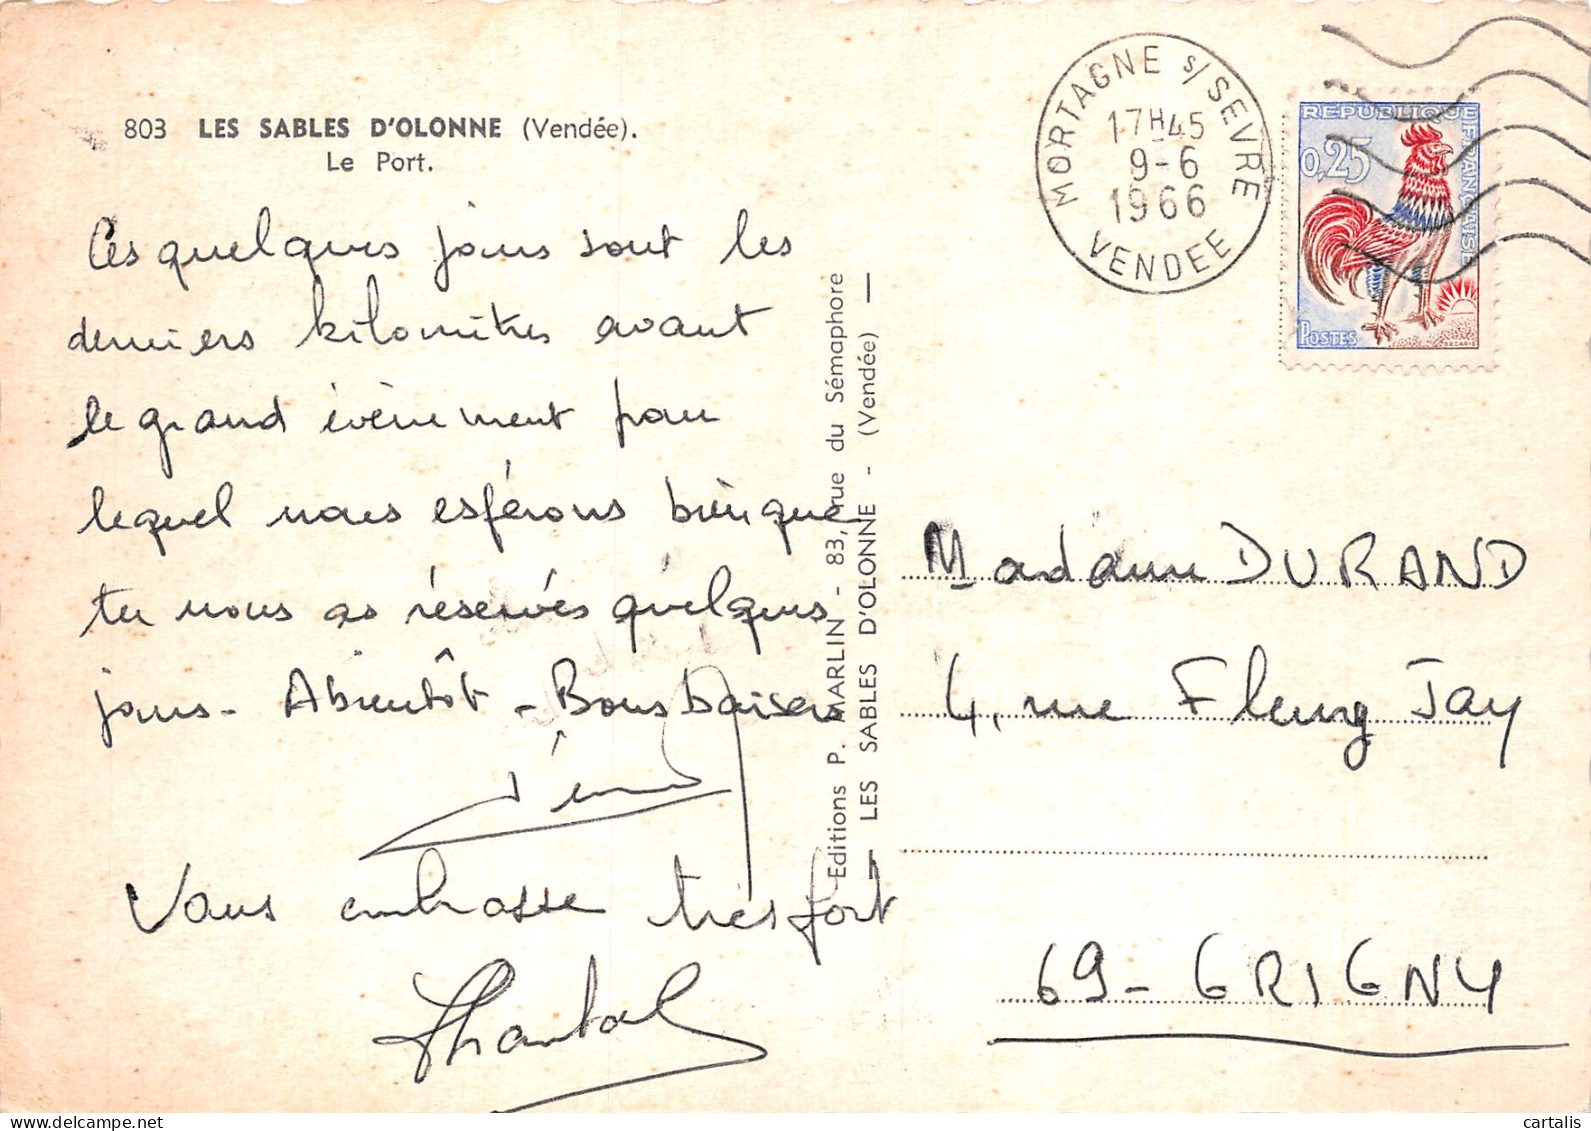 803 LES SABLES D'OLONNE (Vendée).
Le Port.
Ces quelques jours sont les
derniers kilomètres avant
le grand évènement pour
lequel nous espérons bien que
tu nous as réservés quelques
jours - A bientôt - Bons baisers
Vous embrasse très fort
Chantal
Editions P. MARLIN - 83, rue du Sémaphore
— LES SABLES D'OLONNE - (Vendée) —
MORTAGNE S/ SEVRE
17H45
9-6
1966
VENDEE
REPUBLIQUE FRANÇAISE
0,25
POSTES
DECARIS
Madame DURAND
4, rue Fleury Jay
69 - GRIGNY
www.delcampe.net
cartalis